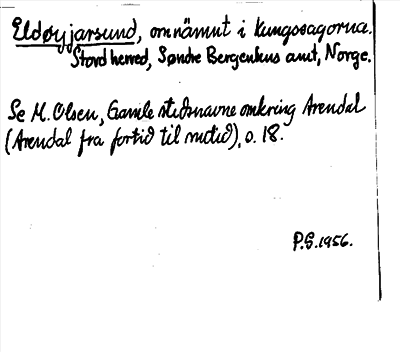 Eldøyjarsund, omnämnt i kungasagorna.
Stord herred, Søndre Bergenhus amt, Norge.
Se M. Olsen, Gamle stedsnavne omkring Arendal
(Arendal fra fortid til nutid), s. 18.
P.S. 1956.